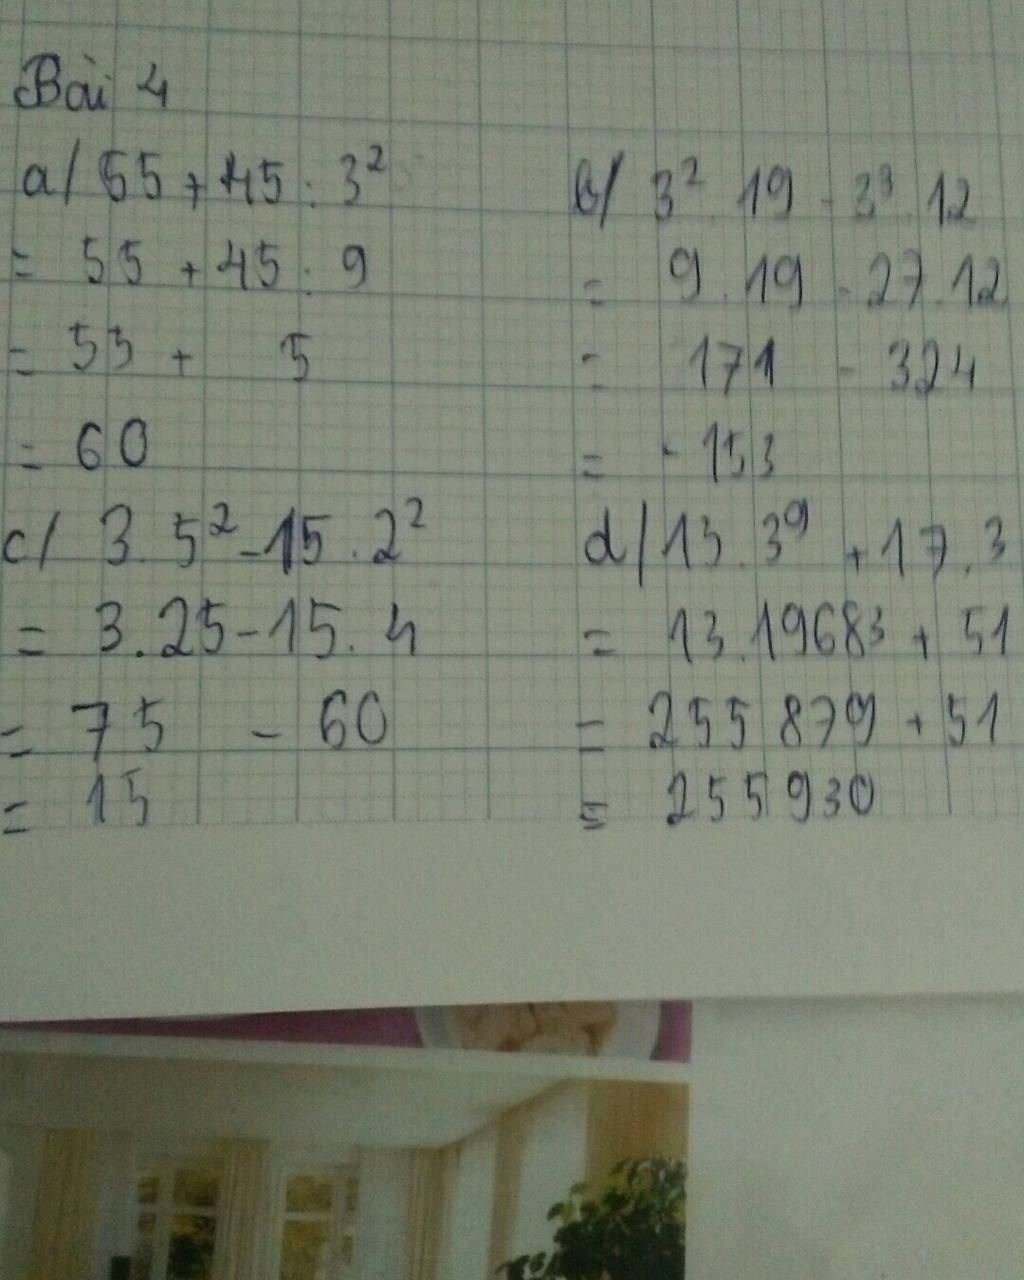 Bài 4
a/ 55 + 45 : 3²
= 55 + 45 : 9
= 55 + 5
= 60
b/ 3² . 19 - 3³ . 12
= 9 . 19 - 27 . 12
= 171 - 324
= - 153
c/ 3 . 5² - 15 . 2²
= 3 . 25 - 15 . 4
= 75 - 60
= 15
d/ 13 . 3⁹ + 17 . 3
= 13 . 19683 + 51
= 255 879 + 51
= 255 930